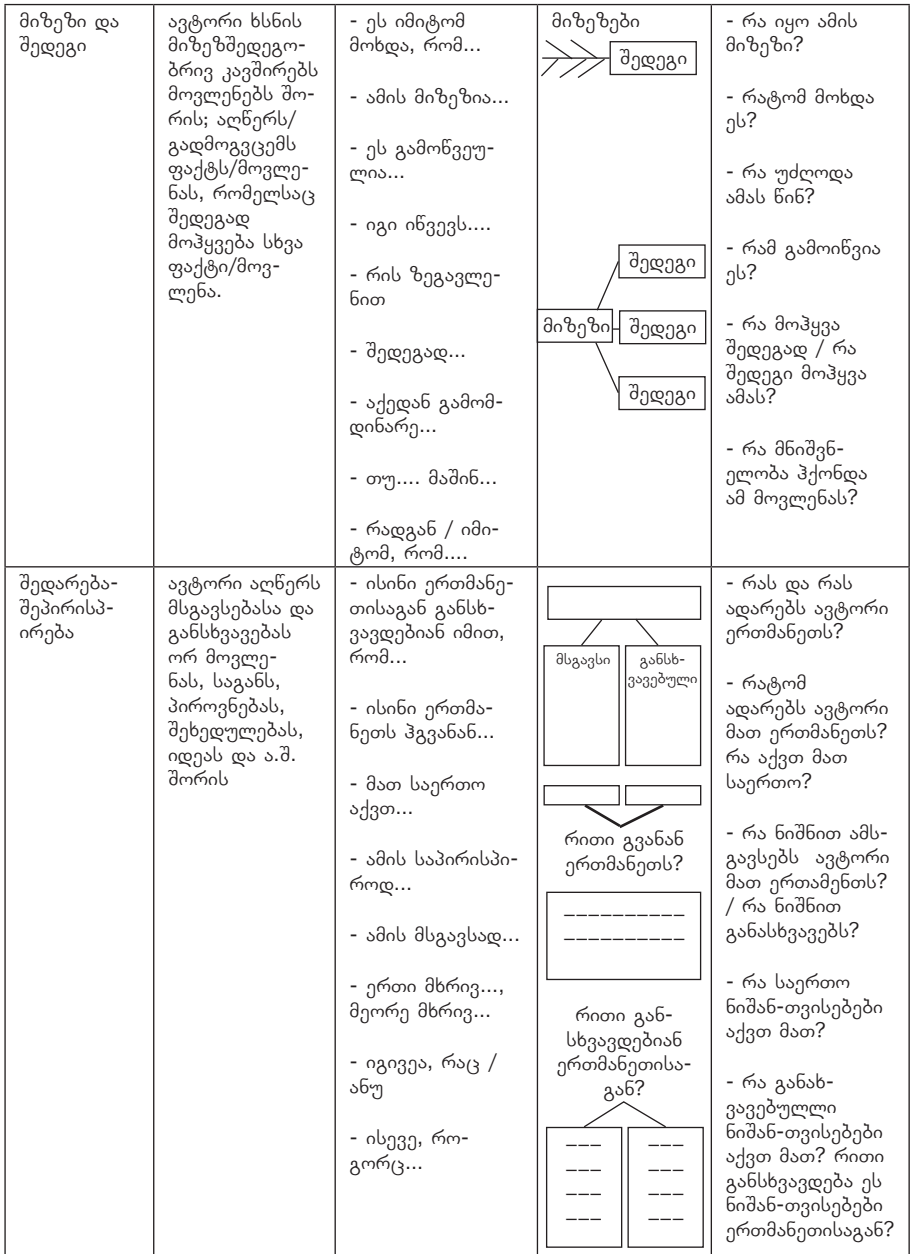 მიზეზი და
შედეგი
ავტორი ხსნის
მიზეზშედეგო-
ბრივ კავშირებს
მოვლენებს შო-
რის; აღწერს/
გადმოგვცემს
ფაქტს/მოვლე-
ნას, რომელსაც
შედეგად
მოჰყვება სხვა
ფაქტი/მოვ-
ლენა.
- ეს იმიტომ
მოხდა, რომ...
- ამის მიზეზია...
- ეს გამოწვეუ-
ლია...
- იგი იწვევს....
- რის ზეგავლე-
ნით
- შედეგად...
- აქედან გამომ-
დინარე...
- თუ.... მაშინ...
- რადგან / იმი-
ტომ, რომ....
მიზეზები
შედეგი
შედეგი
მიზეზი
შედეგი
შედეგი
- რა იყო ამის
მიზეზი?
- რატომ მოხდა
ეს?
- რა უძღოდა
ამას წინ?
- რამ გამოიწვია
ეს?
- რა მოჰყვა
შედეგად / რა
შედეგი მოჰყვა
ამას?
- რა მნიშვნ-
ელობა ჰქონდა
ამ მოვლენას?
შედარება-
შეპირისპ-
ირება
ავტორი აღწერს
მსგავსებასა და
განსხვავებას
ორ მოვლე-
ნას, საგანს,
პიროვნებას,
შეხედულებას,
იდეას და ა.შ.
შორის
- ისინი ერთმანე-
თისაგან განსხ-
ვავდებიან იმით,
რომ...
- ისინი ერთმა-
ნეთს ჰგვანან...
- მათ საერთო
აქვთ...
- ამის საპირისპი-
როდ...
- ამის მსგავსად...
- ერთი მხრივ...,
მეორე მხრივ...
- იგივეა, რაც /
ანუ
- ისევე, რო-
გორც...
მსგავსი
განსხ-
ვავებული
რითი გვანან
ერთმანეთს?
რითი გან-
სხვავდებიან
ერთმანეთისა-
გან?
- რას და რას
ადარებს ავტორი
ერთმანეთს?
- რატომ
ადარებს ავტორი
მათ ერთმანეთს?
რა აქვთ მათ
საერთო?
- რა ნიშნით ამს-
გავსებს ავტორი
მათ ერთამენთს?
/ რა ნიშნით
განასხვავებს?
- რა საერთო
ნიშან-თვისებები
აქვთ მათ?
- რა განახ-
ვავებულლი
ნიშან-თვისებები
აქვთ მათ? რითი
განსხვავდება ეს
ნიშან-თვისებები
ერთმანეთისაგან?